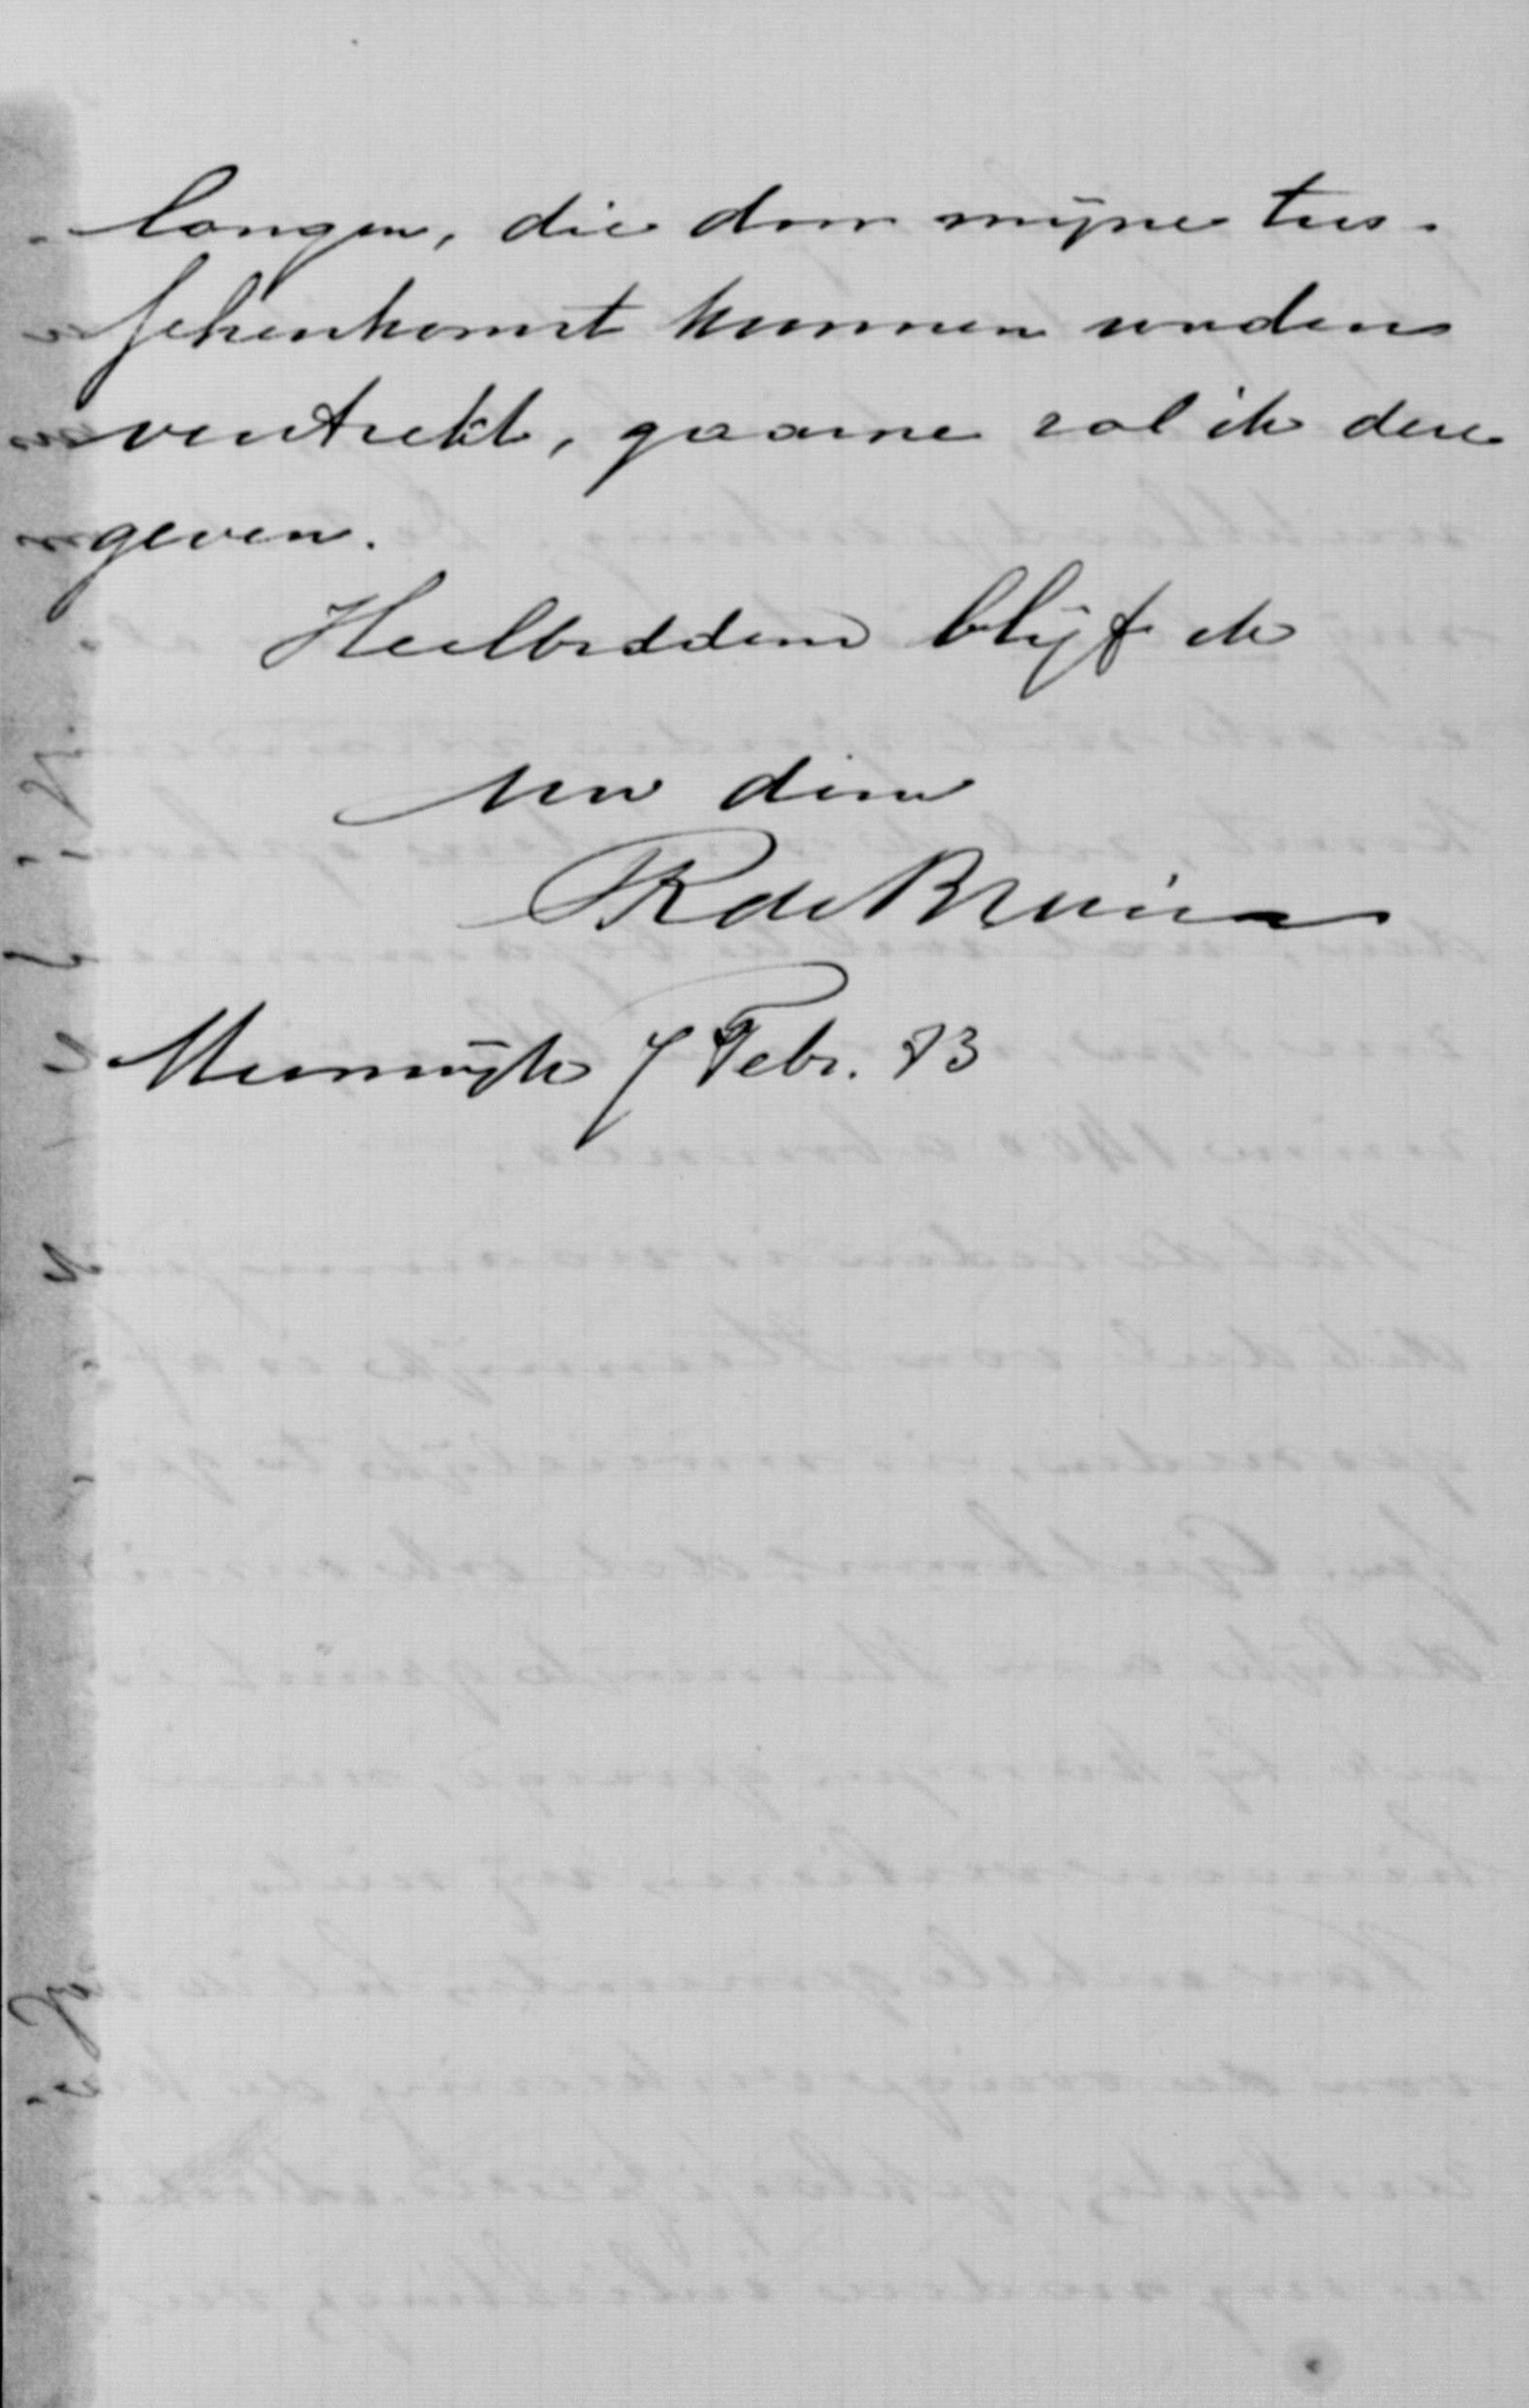 langen, die door mijne tus-
schenkomst kunnen worden
verstrekt, gaarne zal ik deze
geven.
Heilbiddend blijf ik
Uw dien
R de Bruin
7 Febr. 93